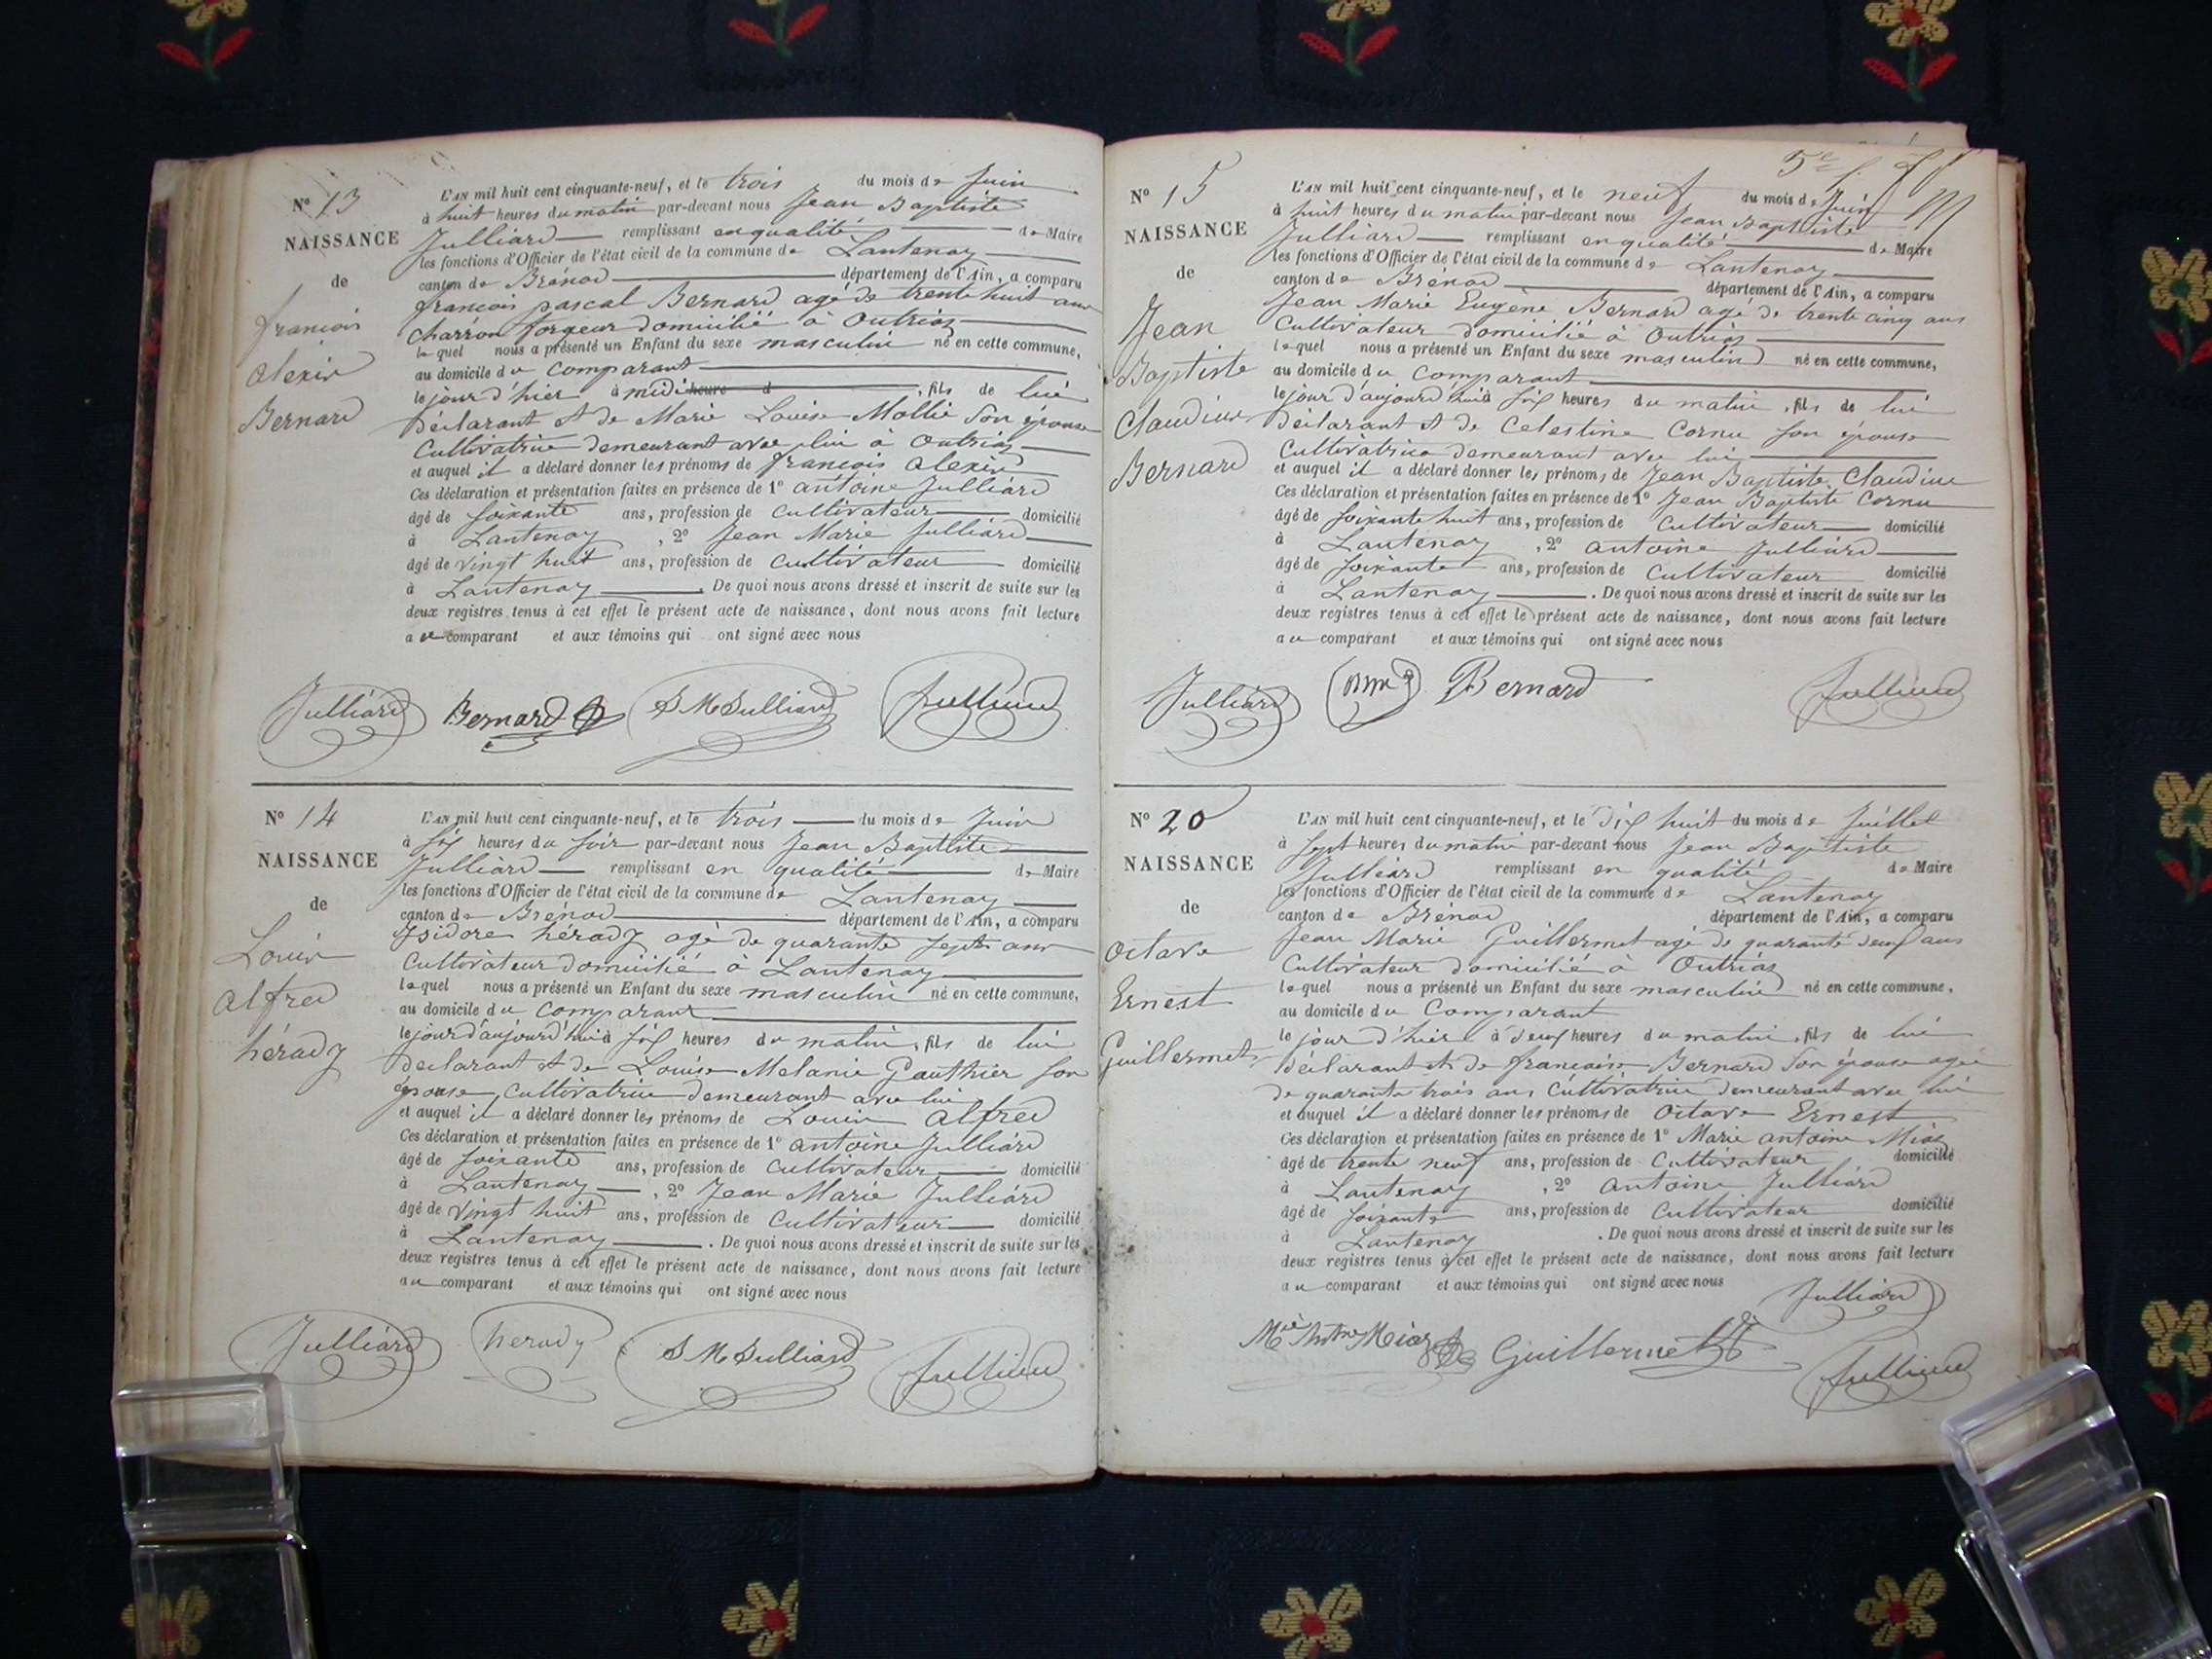 N° 13
NAISSANCE
de
françois
alexis
Bernard
L'AN mil huit cent cinquante-neuf, et le trois du mois de Juin
à huit heures du matin par-devant nous Jean Baptiste
Julliard remplissant en qualité de Maire
les fonctions d'Officier de l'état civil de la commune de Lantenay
canton de Brénod département de l'Ain, a comparu
françois pascal Bernard agé de trente huit ans
charron forgeur domicilié à Outriaz
lequel nous a présenté un Enfant du sexe masculin né en cette commune,
au domicile du comparant
le jour d'hier à midi heure d , fils de lui
déclarant et de Marie Louise Mollie son épouse
Cultivatrice demeurant avec lui à Outriaz
et auquel il a déclaré donner les prénoms de françois alexis
Ces déclaration et présentation faites en présence de 1° antoine Julliard
âgé de soixante ans, profession de Cultivateur domicilié
à Lantenay , 2° Jean Marie Julliard
âgé de vingt huit ans, profession de cultivateur domicilié
à Lantenay . De quoi nous avons dressé et inscrit de suite sur les
deux registres tenus à cet effet le présent acte de naissance, dont nous avons fait lecture
au comparant et aux témoins qui ont signé avec nous
Julliard Bernard J M Julliard Julliard
N° 14
NAISSANCE
de
Louis
alfred
hérady
L'AN mil huit cent cinquante-neuf, et le trois du mois de Juin
à six heures du soir par-devant nous Jean Baptiste
Julliard remplissant en qualité de Maire
les fonctions d'Officier de l'état civil de la commune de Lantenay
canton de Brénod département de l'Ain, a comparu
Isidore hérady agé de quarante sept ans
Cultivateur domicilié à Lantenay
lequel nous a présenté un Enfant du sexe masculin né en cette commune,
au domicile du comparant
le jour d'aujourd'hui à six heures du matin, fils de lui
déclarant et de Louise Melanie Gauthier son
épouse, Cultivatrice demeurant avec lui
et auquel il a déclaré donner les prénoms de Louis alfred
Ces déclaration et présentation faites en présence de 1° antoine Julliard
âgé de soixante ans, profession de cultivateur domicilié
à Lantenay , 2° Jean Marie Julliard
âgé de vingt huit ans, profession de Cultivateur domicilié
à Lantenay . De quoi nous avons dressé et inscrit de suite sur les
deux registres tenus à cet effet le présent acte de naissance, dont nous avons fait lecture
au comparant et aux témoins qui ont signé avec nous
Julliard herady J M Julliard Julliard
5e
N° 15
NAISSANCE
de
Jean
Baptiste
Claudius
Bernard
L'AN mil huit cent cinquante-neuf, et le neuf du mois de Juin
à huit heures du matin par-devant nous Jean Baptiste
Julliard remplissant en qualité de Maire
les fonctions d'Officier de l'état civil de la commune de Lantenay
canton de Brénod département de l'Ain, a comparu
Jean Marie Eugène Bernard agé de trente cinq ans
Cultivateur domicilié à Outriaz
lequel nous a présenté un Enfant du sexe masculin né en cette commune,
au domicile du comparant
le jour d'aujourd'hui à six heures du matin, fils de lui
déclarant et de Celestine Cornu son épouse
Cultivatrice demeurant avec lui
et auquel il a déclaré donner les prénoms de Jean Baptiste Claudius
Ces déclaration et présentation faites en présence de 1° Jean Baptiste Cornu
âgé de soixante huit ans, profession de Cultivateur domicilié
à Lantenay , 2° antoine Julliard
âgé de soixante ans, profession de Cultivateur domicilié
à Lantenay . De quoi nous avons dressé et inscrit de suite sur les
deux registres tenus à cet effet le présent acte de naissance, dont nous avons fait lecture
au comparant et aux témoins qui ont signé avec nous
Julliard Bernard Julliard
N° 20
NAISSANCE
de
octave
Ernest
Guillermet
L'AN mil huit cent cinquante-neuf, et le dix huit du mois de Juillet
à sept heures du matin par-devant nous Jean Baptiste
Julliard remplissant en qualité de Maire
les fonctions d'Officier de l'état civil de la commune de Lantenay
canton de Brénod département de l'Ain, a comparu
Jean Marie Guillermet agé de quarante deux ans
Cultivateur domicilié à Outriaz
lequel nous a présenté un Enfant du sexe masculin né en cette commune,
au domicile du Comparant
le jour d'hier à deux heures du matin, fils de lui
déclarant et de françoise Bernard son épouse agée
de quarante trois ans Cultivatrice demeurant avec lui
et auquel il a déclaré donner les prénoms de octave Ernest
Ces déclaration et présentation faites en présence de 1° Marie antoine Miaz
âgé de trente neuf ans, profession de Cultivateur domicilié
à Lantenay , 2° antoine Julliard
âgé de soixante ans, profession de Cultivateur domicilié
à Lantenay . De quoi nous avons dressé et inscrit de suite sur les
deux registres tenus à cet effet le présent acte de naissance, dont nous avons fait lecture
au comparant et aux témoins qui ont signé avec nous
Julliard
Mie Antne Miaz Guillermet
Julliard